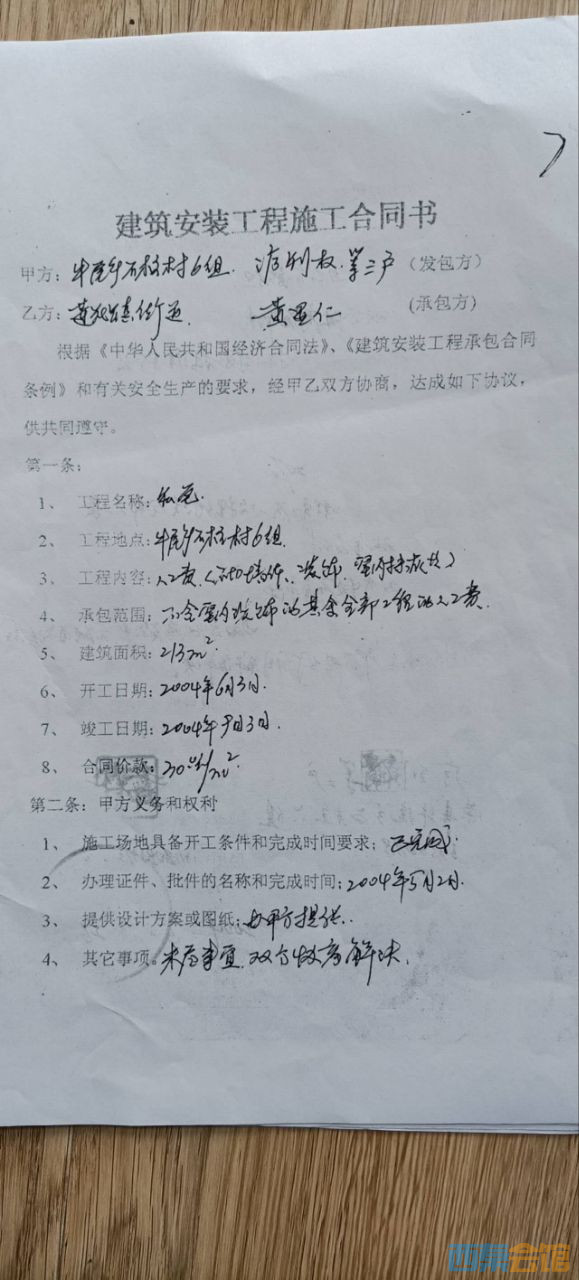 建筑安装工程施工合同书
甲方：牛尾乡石柱村6组. 权. 等三户（发包方）
乙方： 黄 仁 （承包方）
根据《中华人民共和国经济合同法》、《建筑安装工程承包合同
条例》和有关安全生产的要求，经甲乙双方协商，达成如下协议，
供共同遵守。
第一条：
1、 工程名称：
2、 工程地点：牛尾乡石柱村6组.
3、 工程内容：人工费
4、 承包范围：不含室内装饰的其余全部工程的人工费.
5、 建筑面积：213m².
6、 开工日期：2004年6月3日.
7、 竣工日期：2004年9月3日.
8、 合同价款：/m²
第二条：甲方义务和权利
1、 施工场地具备开工条件和完成时间要求：已完成.
2、 办理证件、批件的名称和完成时间：2004年5月2日.
3、 提供设计方案或图纸：由甲方提供.
4、 其它事项。未尽事宜.双方协商解决.
西渠会馆